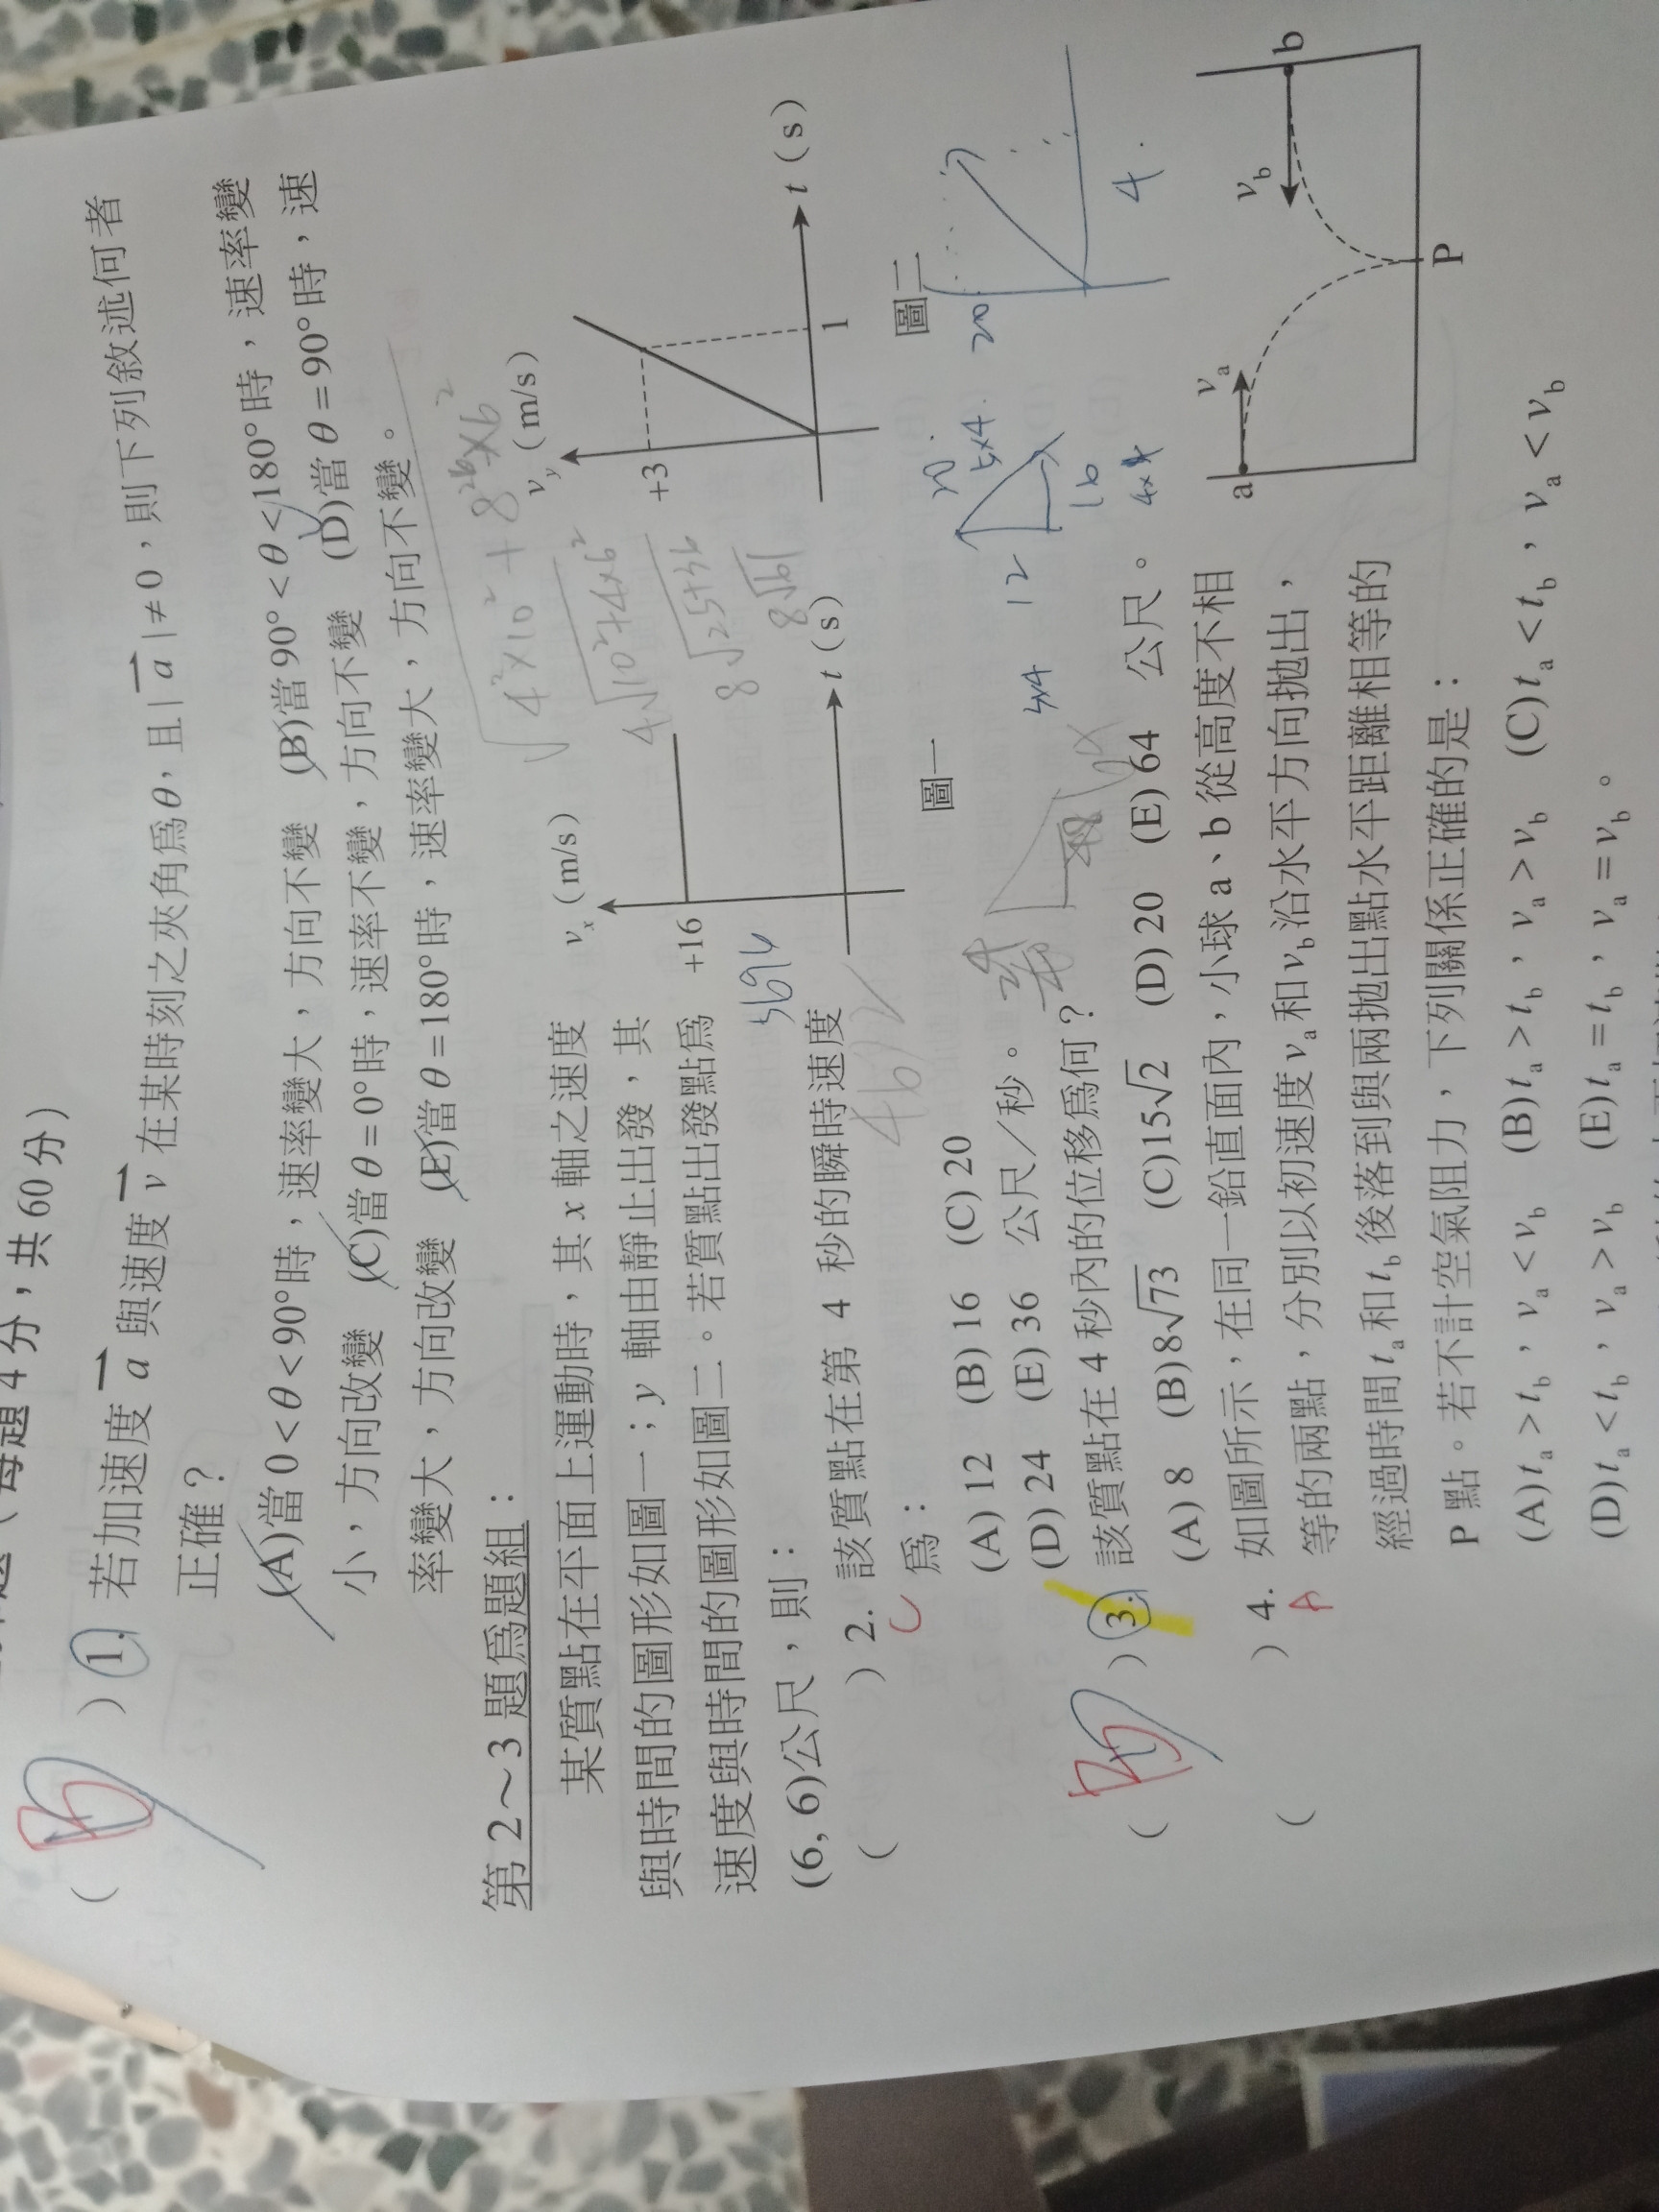 (每題 4 分，共 60 分)
( ) 1. 若加速度 a 與速度 v 在某時刻之夾角爲θ，且| a |≠0，則下列敘述何者
正確？
(A)當 0<θ<90°時，速率變大，方向不變 (B)當 90°<θ<180°時，速率變
小，方向改變 (C)當 θ=0°時，速率不變，方向不變 (D)當 θ=90°時，速
率變大，方向改變 (E)當 θ=180°時，速率變大，方向不變。
第 2～3 題爲題組：
某質點在平面上運動時，其 x 軸之速度
與時間的圖形如圖一；y 軸由靜止出發，其
速度與時間的圖形如圖二。若質點出發點爲
(6, 6)公尺，則：
vx (m/s)
+16
t (s)
圖一
vy (m/s)
+3
1
t (s)
圖二
√4²×10²+8²×6²
4√10²+4×6²
8√25+36
8√61
( ) 2. 該質點在第 4 秒的瞬時速度
C
爲：
(A) 12 (B) 16 (C) 20
(D) 24 (E) 36 公尺／秒。
12
20
5×4
16
4×4
20
4
( B ) 3. 該質點在 4 秒內的位移爲何？
(A) 8 (B) 8√73 (C)15√2 (D) 20 (E) 64 公尺。
( ) 4. 如圖所示，在同一鉛直面內，小球 a、b 從高度不相
A
等的兩點，分別以初速度 va 和 vb 沿水平方向拋出，
經過時間 ta 和 tb 後落到與兩拋出點水平距離相等的
P 點。若不計空氣阻力，下列關係正確的是：
(A) ta > tb，va < vb (B) ta > tb，va > vb (C) ta < tb，va < vb
(D) ta < tb，va > vb (E) ta = tb，va = vb。
a
va
vb
b
P